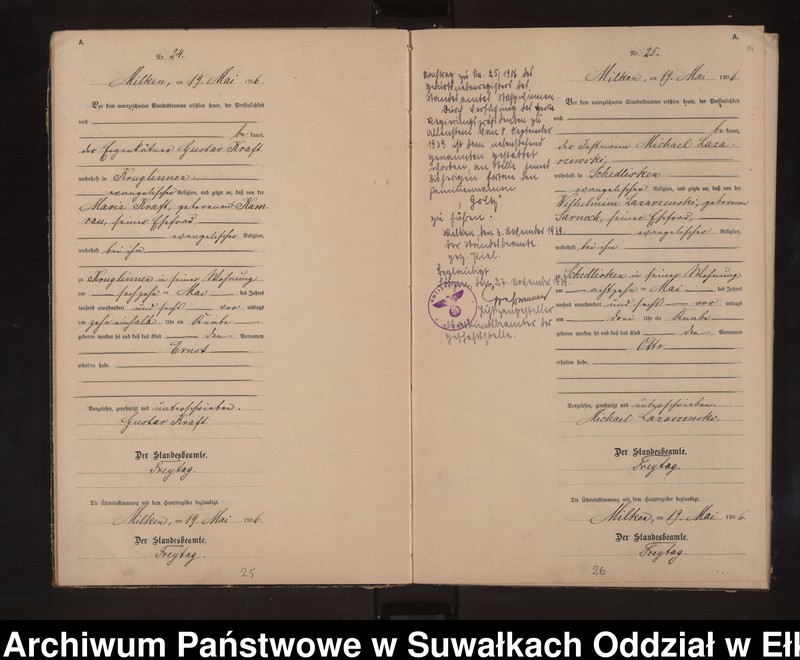 A.
Nr. 24.
Milken, am 19. Mai 1906.
Vor dem unterzeichneten Standesbeamten erschien heute, der Persönlichkeit
nach
be kannt,
der Eigenkätner Gustav Kraft
wohnhaft in Kruglinnen
evangelischer Religion, und zeigte an, daß von der
Maria Kraft, geborenen Kam-
rau, seiner Ehefrau
evangelischer Religion,
wohnhaft bei ihm
zu Kruglinnen in seiner Wohnung
am sechzehn ten Mai des Jahres
tausend neunhundert und sechs vor mittags
um zehn einhalb Uhr ein Knabe
geboren worden sei und daß das Kind den Vornamen
Ernst
erhalten habe.
Vorgelesen, genehmigt und unterschrieben.
Gustav Kraft
Der Standesbeamte.
Freytag.
Die Übereinstimmung mit dem Hauptregister beglaubigt.
Milken, am 19. Mai 1906.
Der Standesbeamte.
Freytag.
25
zu Nr. 25/1906 des
Geburtsnebenregisters des
Standesamtes
Durch Verfügung des Herrn
Regierungspräsidenten zu
Allenstein vom 8. September
1939 ist dem nebenstehend
genannten gestattet
worden an Stelle seines
bisherigen fortan den
Familiennamen
"Goltz"
zu führen.
Milken, den 3. November 1939.
Der Standesbeamte.
gez.
Beglaubigt
den 27. November 1939.
Justizangestellter
der
Geschäftsstelle.
A.
Nr. 25.
Milken, am 19. Mai 1906.
Vor dem unterzeichneten Standesbeamten erschien heute, der Persönlichkeit
nach
be kannt,
der Instmann Michael Laza-
rzewski,
wohnhaft in Schedlisken
evangelischer Religion, und zeigte an, daß von der
Wilhelmine Lazarzewski, geborenen
Sarnoch, seiner Ehefrau,
evangelischer Religion,
wohnhaft bei ihm
zu Schedlisken in seiner Wohnung
am achtzehn ten Mai des Jahres
tausend neunhundert und sechs vor mittags
um drei Uhr ein Knabe
geboren worden sei und daß das Kind den Vornamen
Otto
erhalten habe.
Vorgelesen, genehmigt und unterschrieben.
Michael Lazarzewski.
Der Standesbeamte.
Freytag.
Die Übereinstimmung mit dem Hauptregister beglaubigt.
Milken, am 19. Mai 1906.
Der Standesbeamte.
Freytag.
26
Archiwum Państwowe w Suwałkach Oddział w Eł